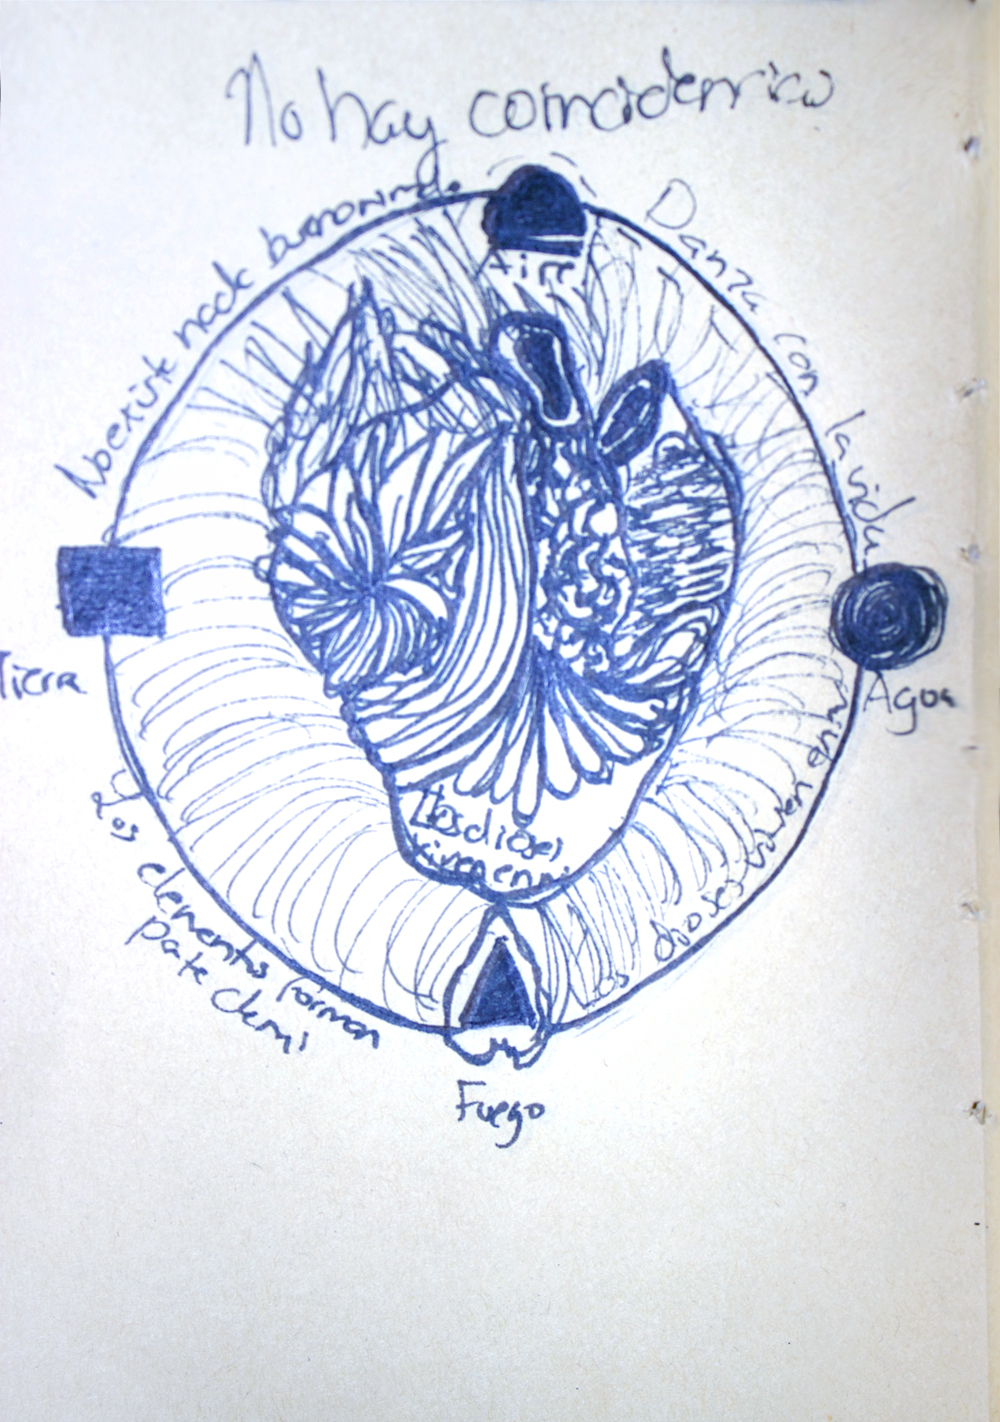 No hay coincidencia
No existe nada bueno ni
Danza con la vida
Aire
Tierra
Agua
Los dioses
viven en mi
Los elementos forman
parte de mi
Los dioses viven en mi
Fuego